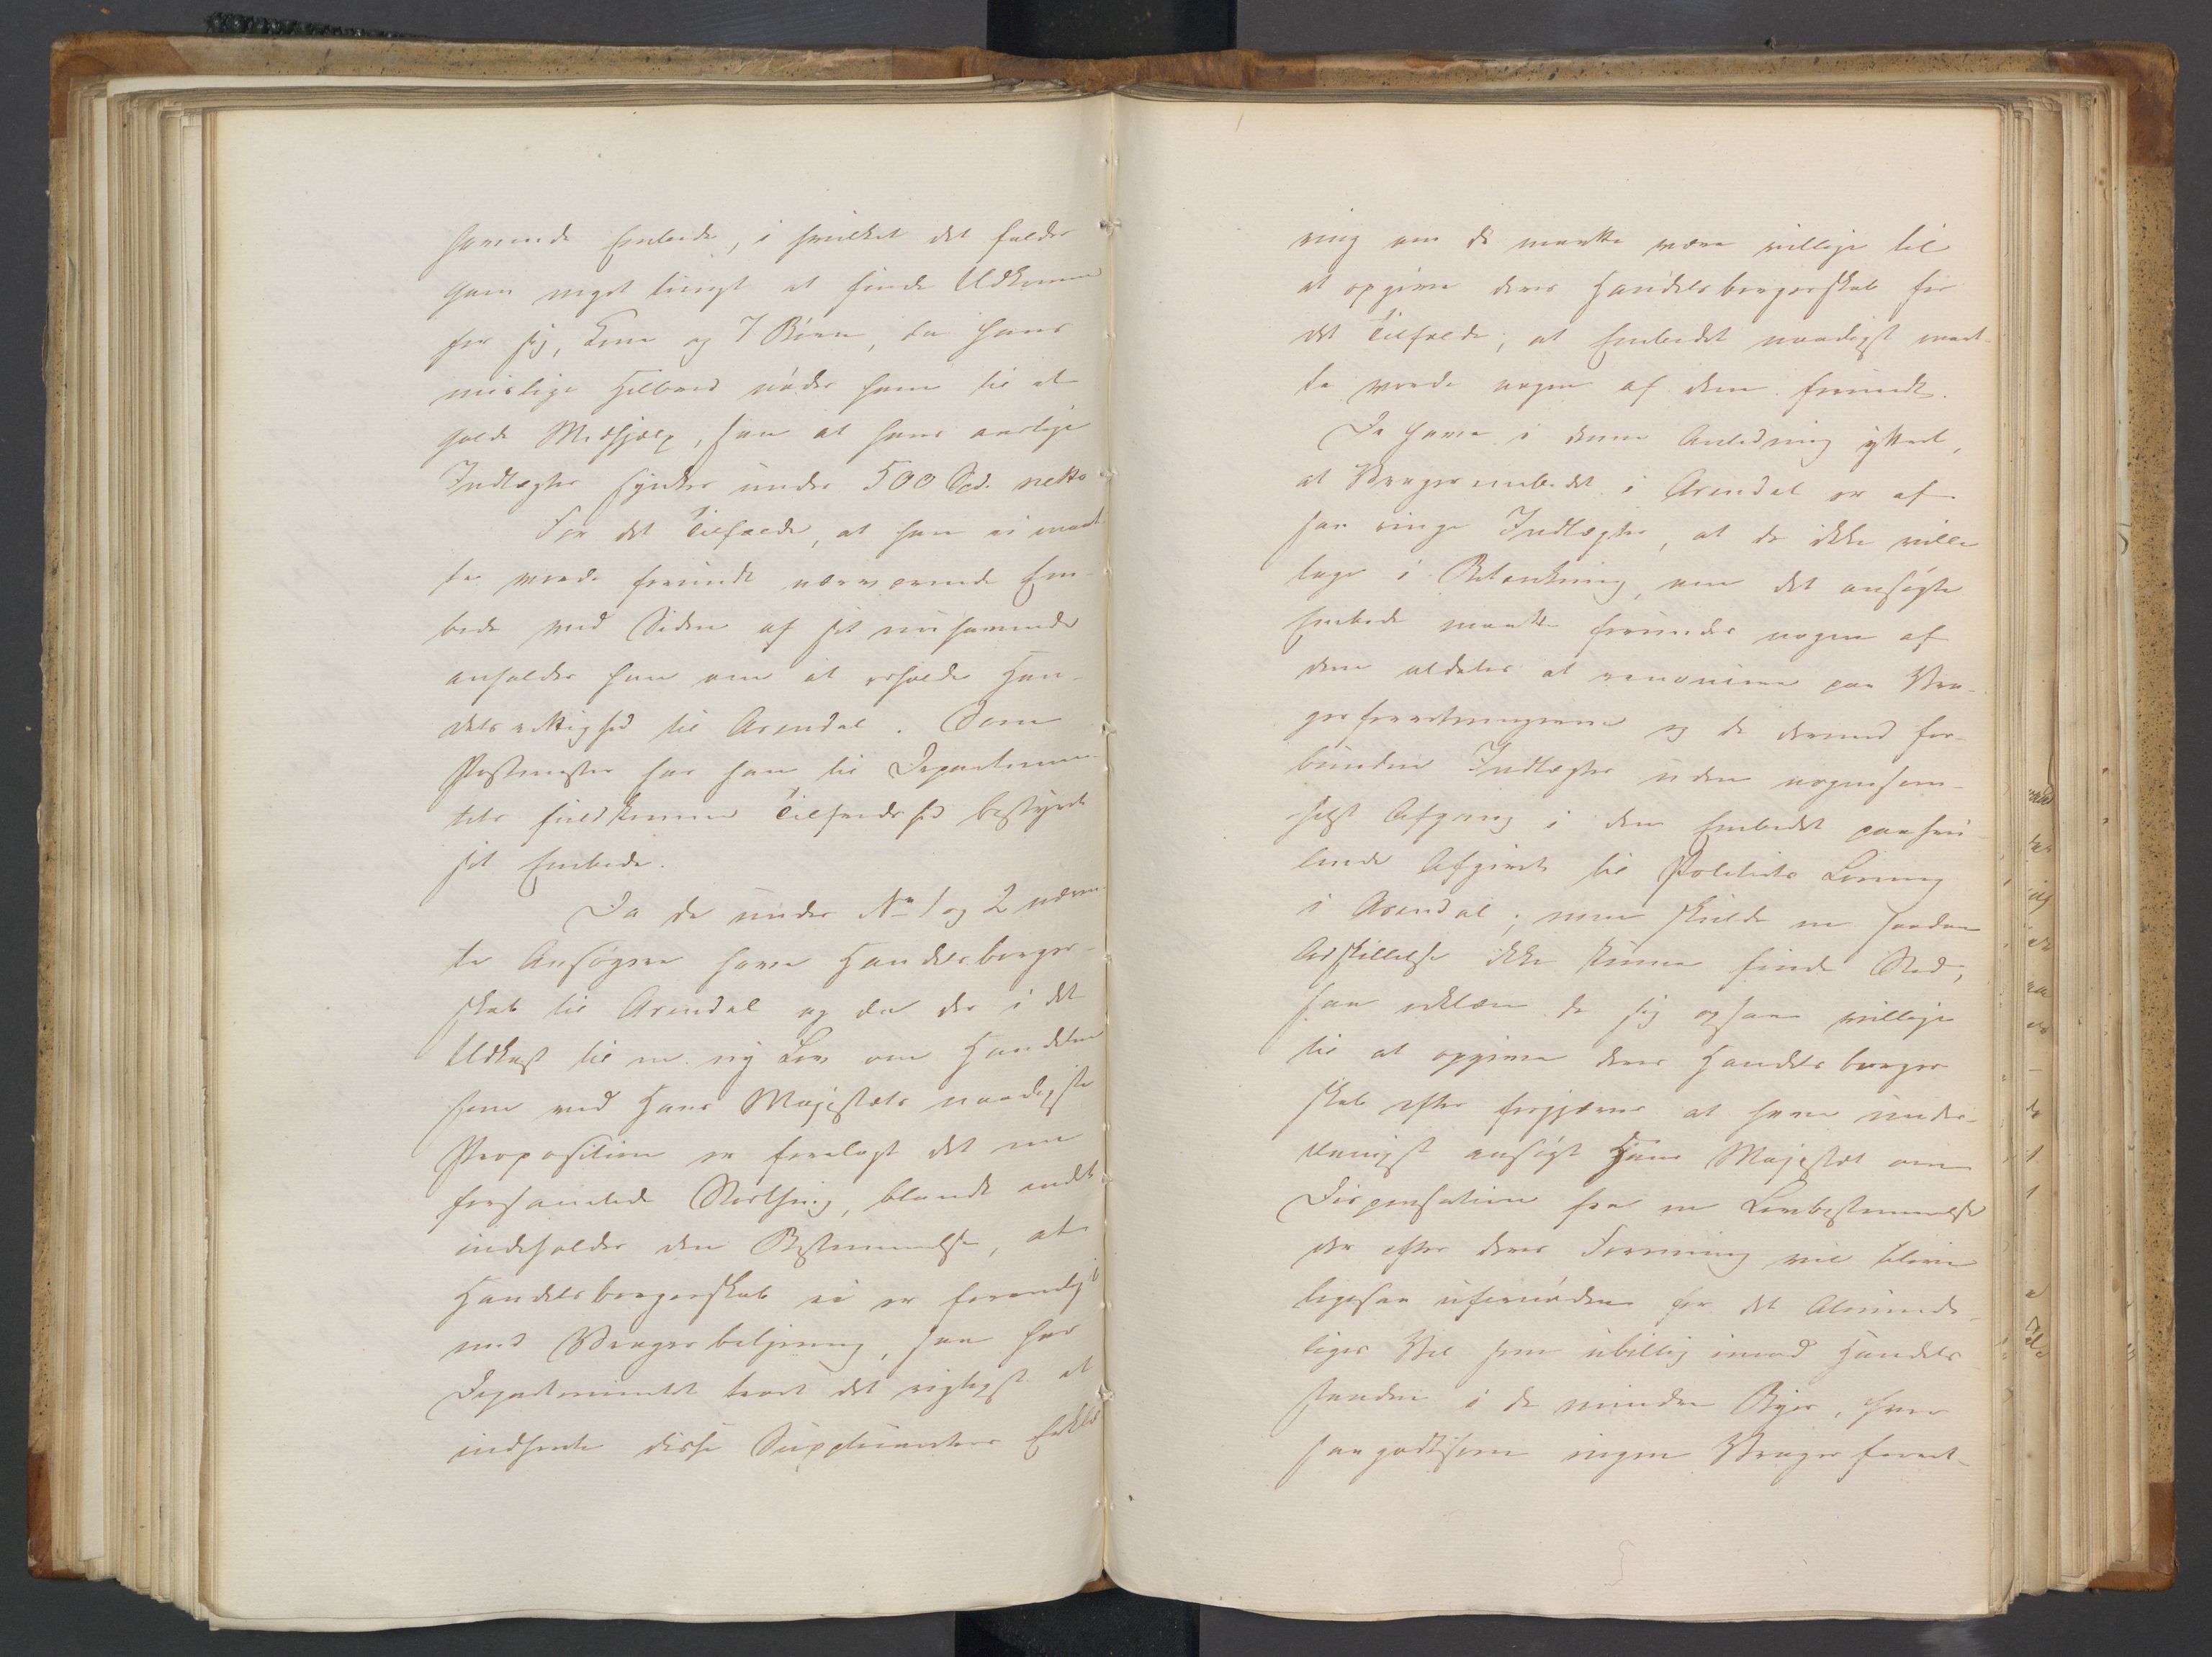 havende Embede, i hvilket det falder
ham meget tungt at finde Udkomme
for sig, Kone og 7 Børn, da hans
mislige Helbred nøder ham til at
holde Medhjælp, saa at hans aarlige
Indtægter synker under 500 Spd. netto
For det Tilfælde, at han ei maat
te vorde forundt nærværende Em-
bede ved Siden af sit nuhavende
anholder han om at erholde Han-
delsrettighed til Arendal. Som
Postmester har han til Departemen-
tets fuldkomne Tilfredshed bestyret
sit Embede.
Da de under No 1 og 2 nævn-
te Ansøgere have Handelsborger-
skab til Arendal og da der i det
Udkast til en ny Lov om Handelen
som ved Hans Majestæts naadigste
Proposition er forelagt det nu
forsamlede Storthing, blandt andet
indeholder den Bestemmelse, at
Handelsborgerskab ei er foreneligt
med Veagerbestjening, saa har
Departementet troet det rigtigst at
indhente disse Supplicanters Erklæ
ring om de maatte være villige til
at opgive deres Handelsborgerskab for
det Tilfælde, at Embedet naadigst maat-
te vorde nogen af dem forundt.
De have i denne Anledning yttret,
at Veagerembedet i Arendal er af
saa ringe Indtægter, at de ikke ville
tage i Betænkning, om det ansøgte
Embede maatte forundes nogen af
dem aldeles at renoncere paa Vea-
gerforretningerne og de dermed for-
bundne Indtægter uden nogensom-
helst Afgang i den Embedet paahvi
lende Afgivt til Politiets Lønning
i Arendal; men skulde en saadan
Adskillelse ikke kunne finde Sted,
saa erklære de sig ogsaa villige
til at opgive deres Handelsborger
skab efter forgjæves at have under-
danigst ansøgt Hans Majestæt om
Dispensation fra en Lovbestemmelse
der efter deres Formening vil blive
ligesaa ufornøden for det Alminde-
liges Vel som ubillig imod Handels
standen i de mindre Byer, hvor
saagodtsom ingen Veagerforret-